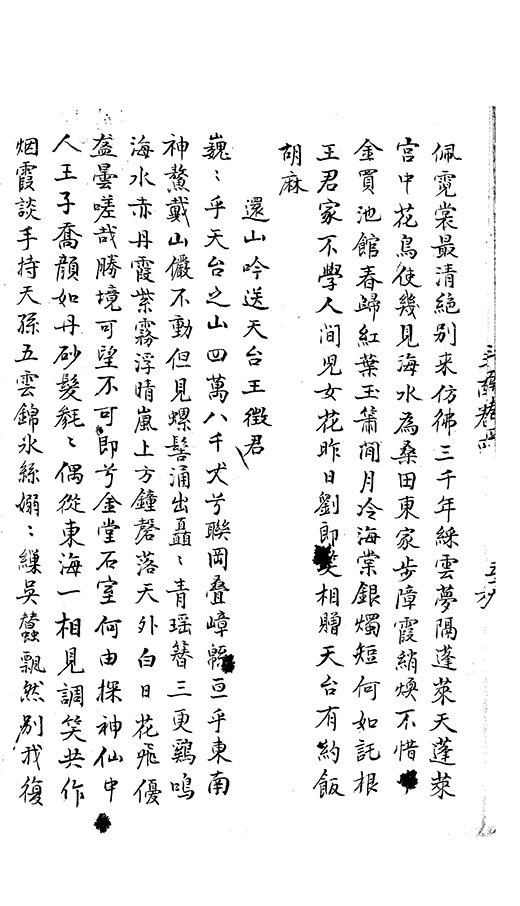 佩霓裳最清絕別来仿彿三千年綵雲夢隔蓬萊天蓬萊
宫中花鳥使幾見海水為桑田東家步障霞綃煥不惜
金買池館春歸紅葉玉簫間月冷海棠銀燭短何如託根
王君家不學人間児女花昨日劉郎笑相贈天台有約飯
胡麻
還山吟送天台王徵君
巍〻乎天台之山四萬八千丈兮聯岡叠嶂亘乎東南
神鰲戴山儼不動但見螺髻涌出矗〻青瑶簪三更鷄鳴
海水赤丹霞紫霧浮晴嵐上方鐘磬落天外白日花飛優
盋曇嗟哉勝境可望不可即兮金堂石室何由探神仙中
人王子喬顔如丹砂髮毿〻偶從東海一相見調笑共作
烟霞談手持天孫五雲錦氷絲嫋〻繅吳蠶飄然別我復